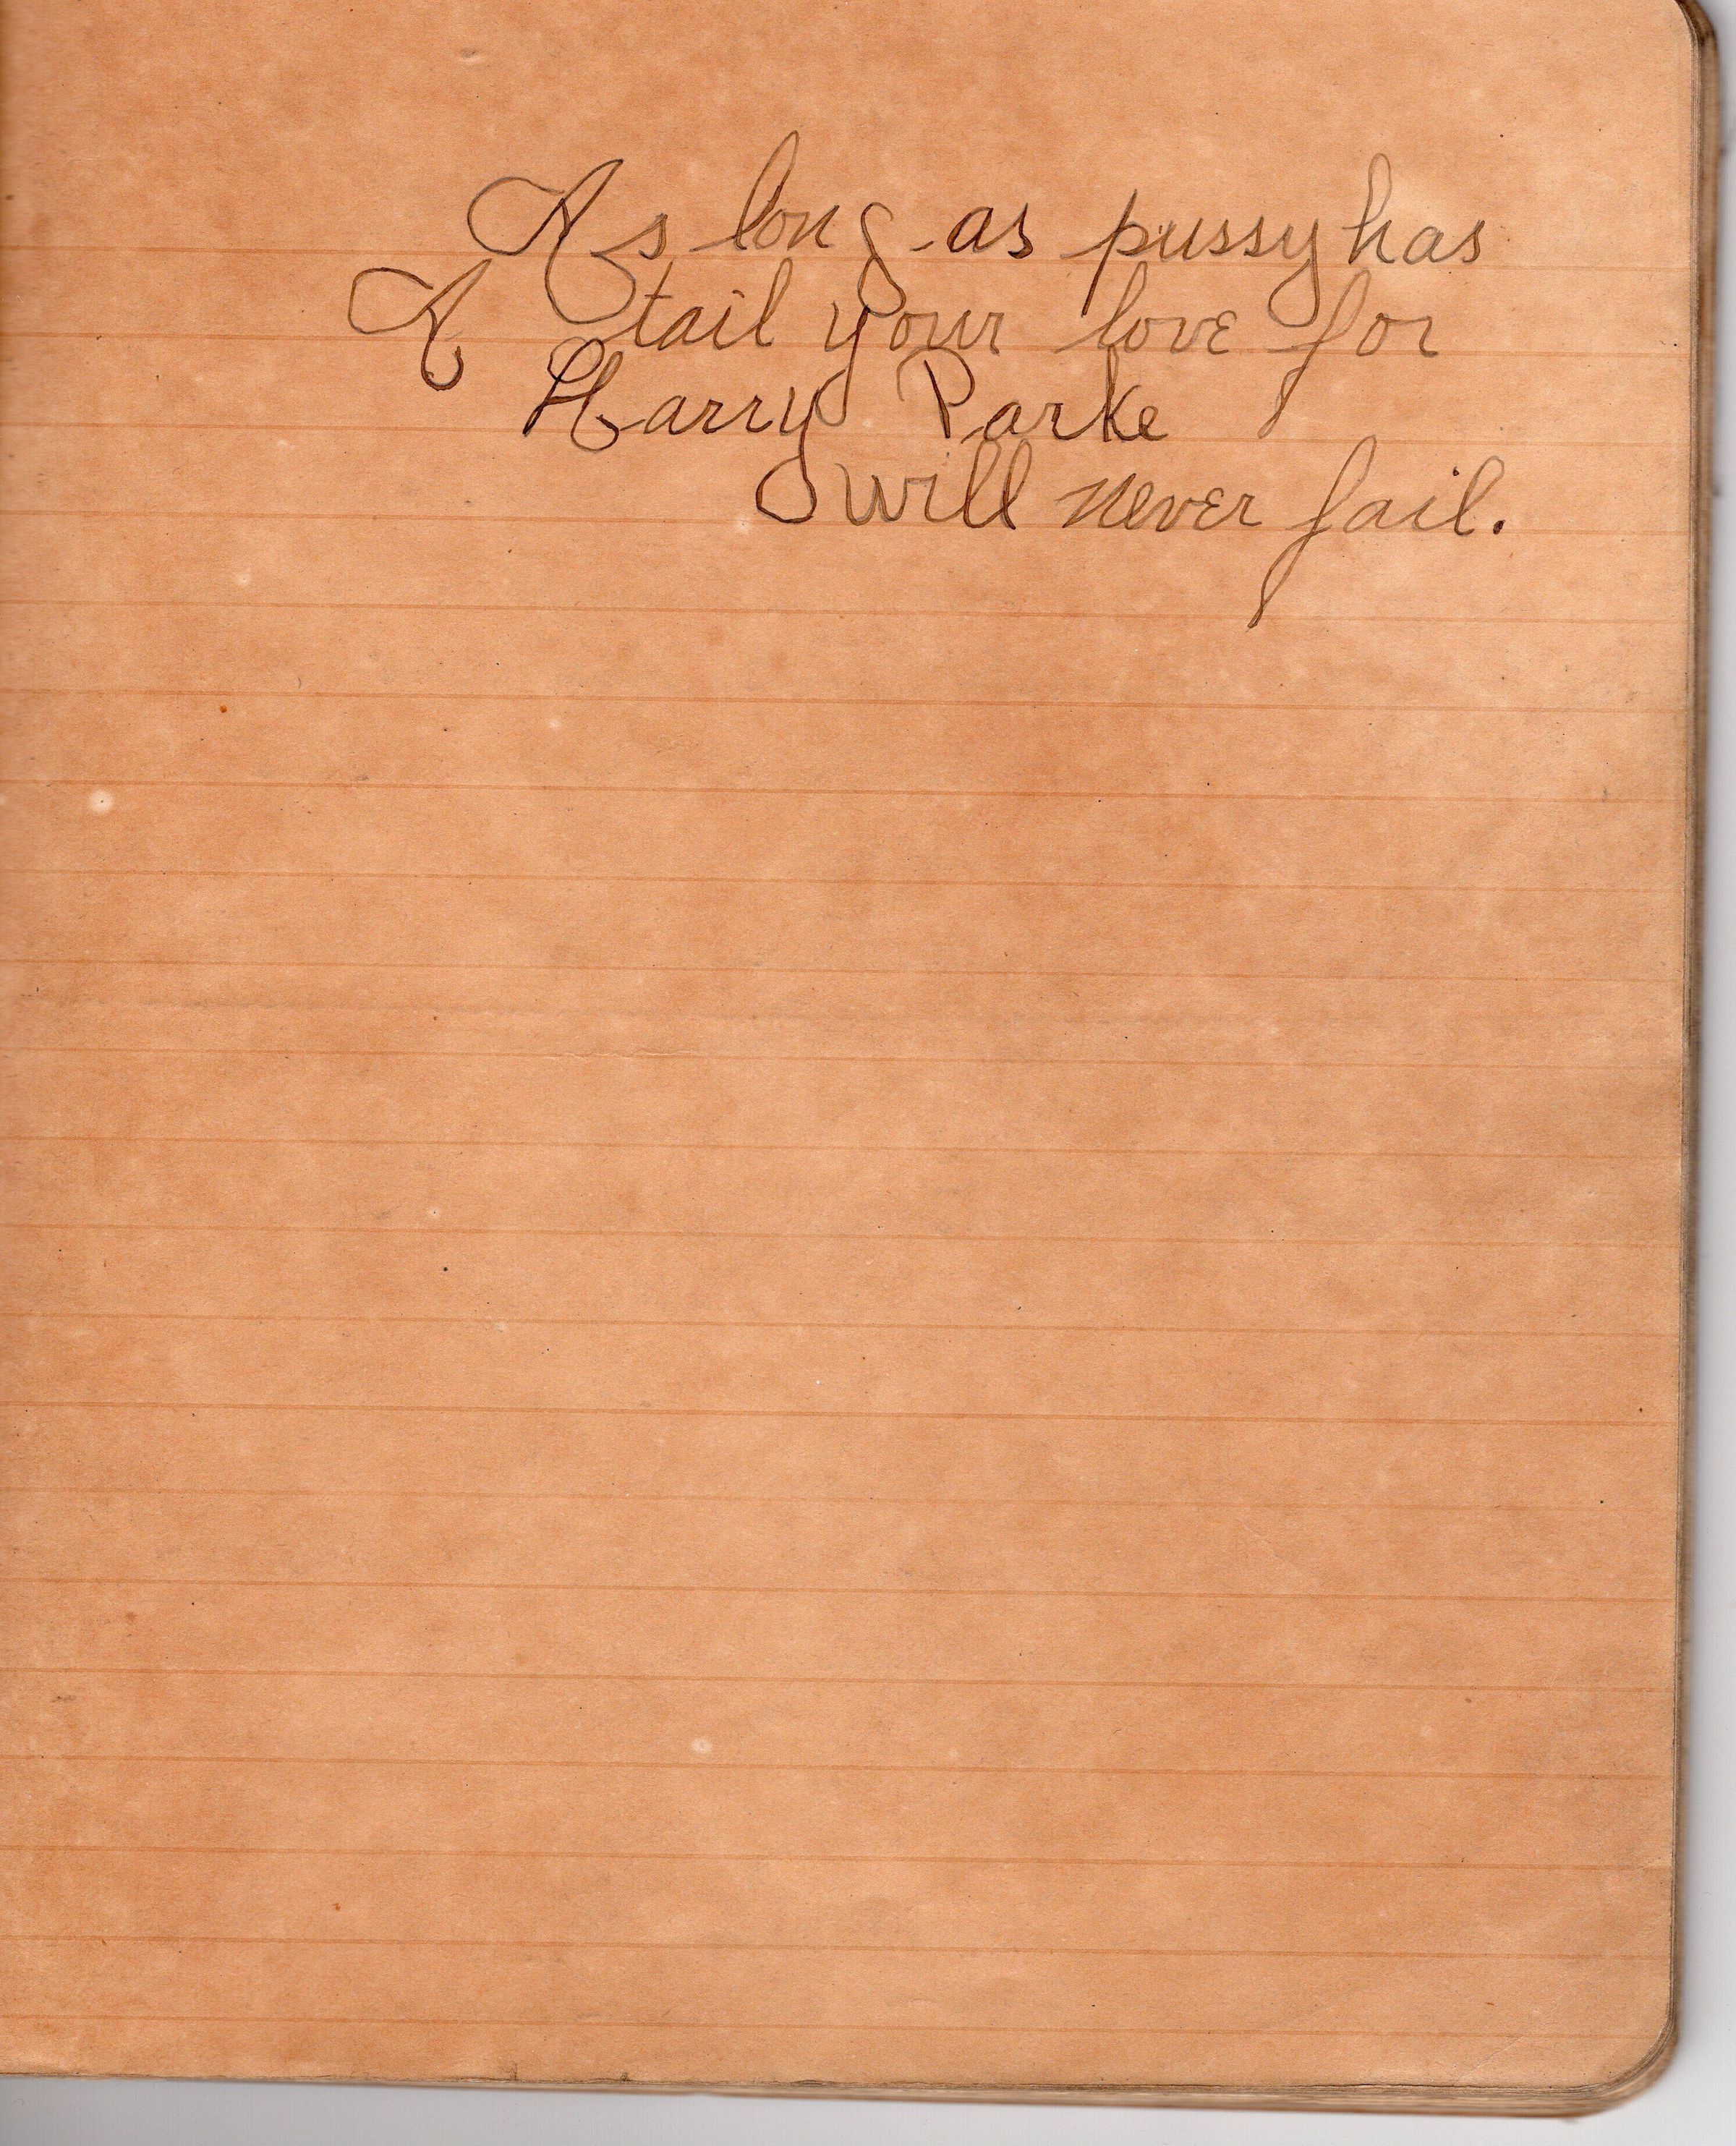 As long as pussy has
A tail your love for
Harry Parke
will never fail.